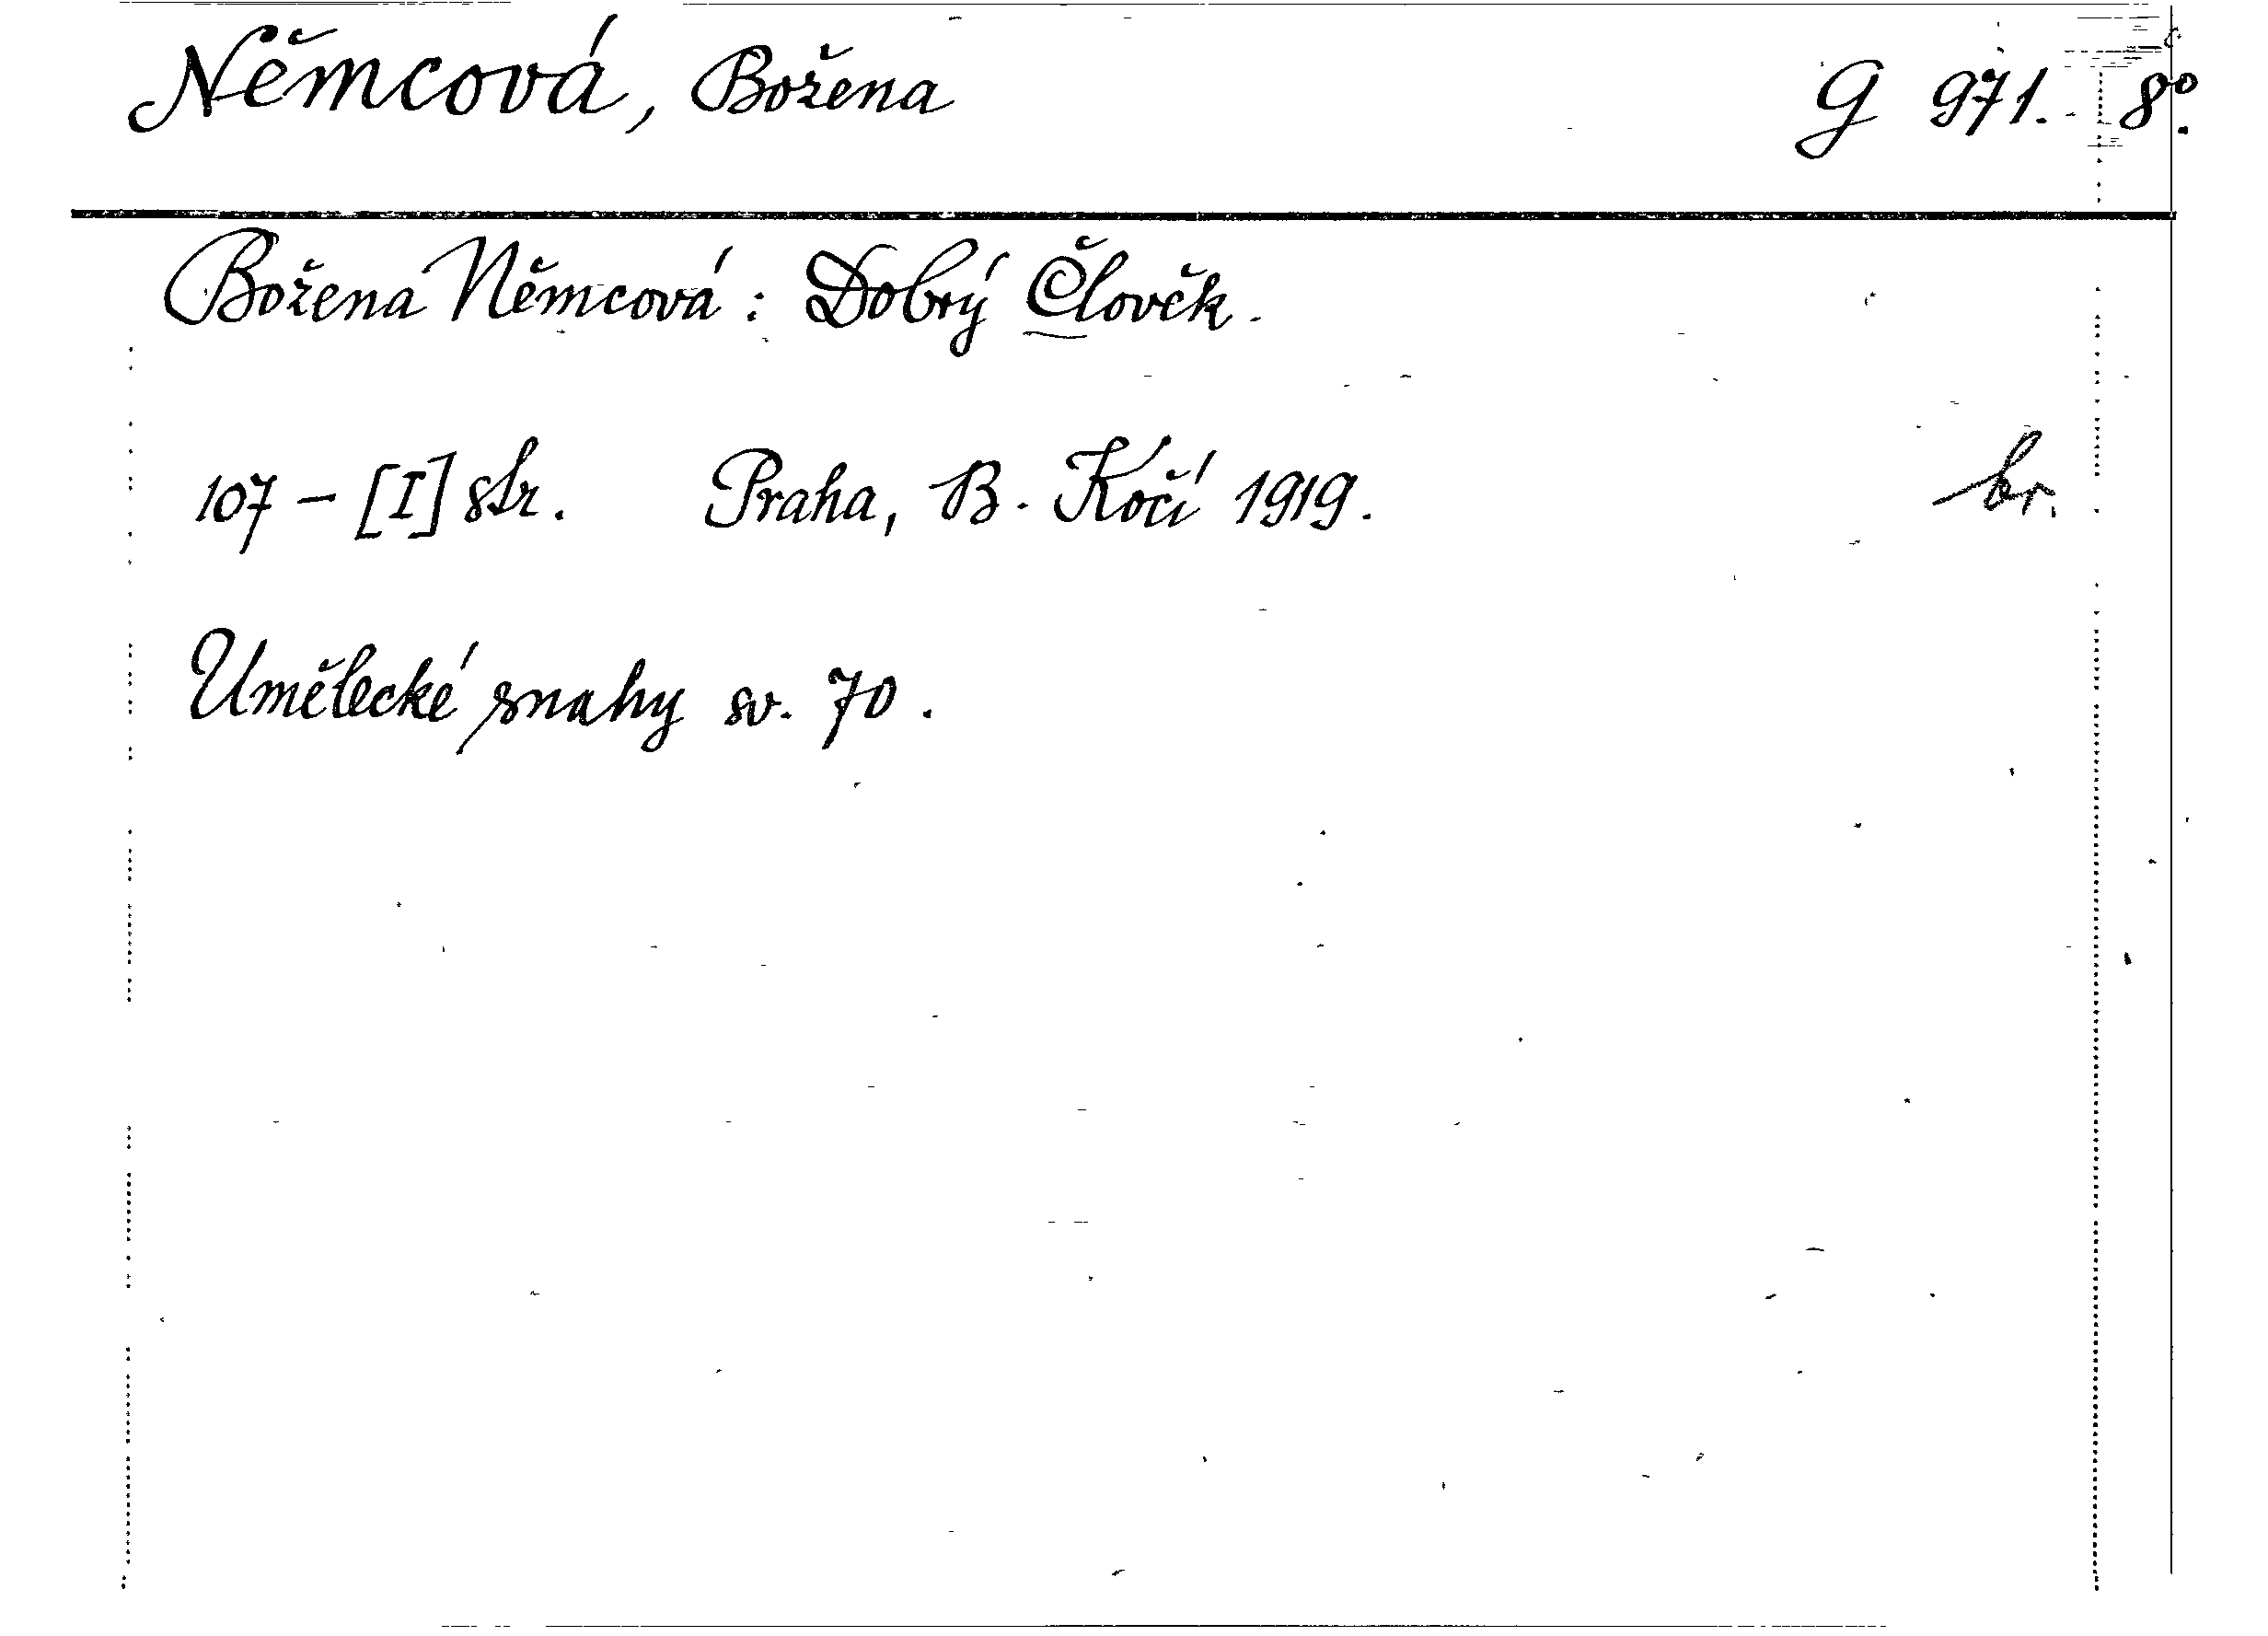 Němcová, Božena G 971. 8°.
Božena Němcová: Dobrý Člověk.
107 - [I] str. Praha, B. Kočí 1919. br.
Umělecké snahy sv. 70.